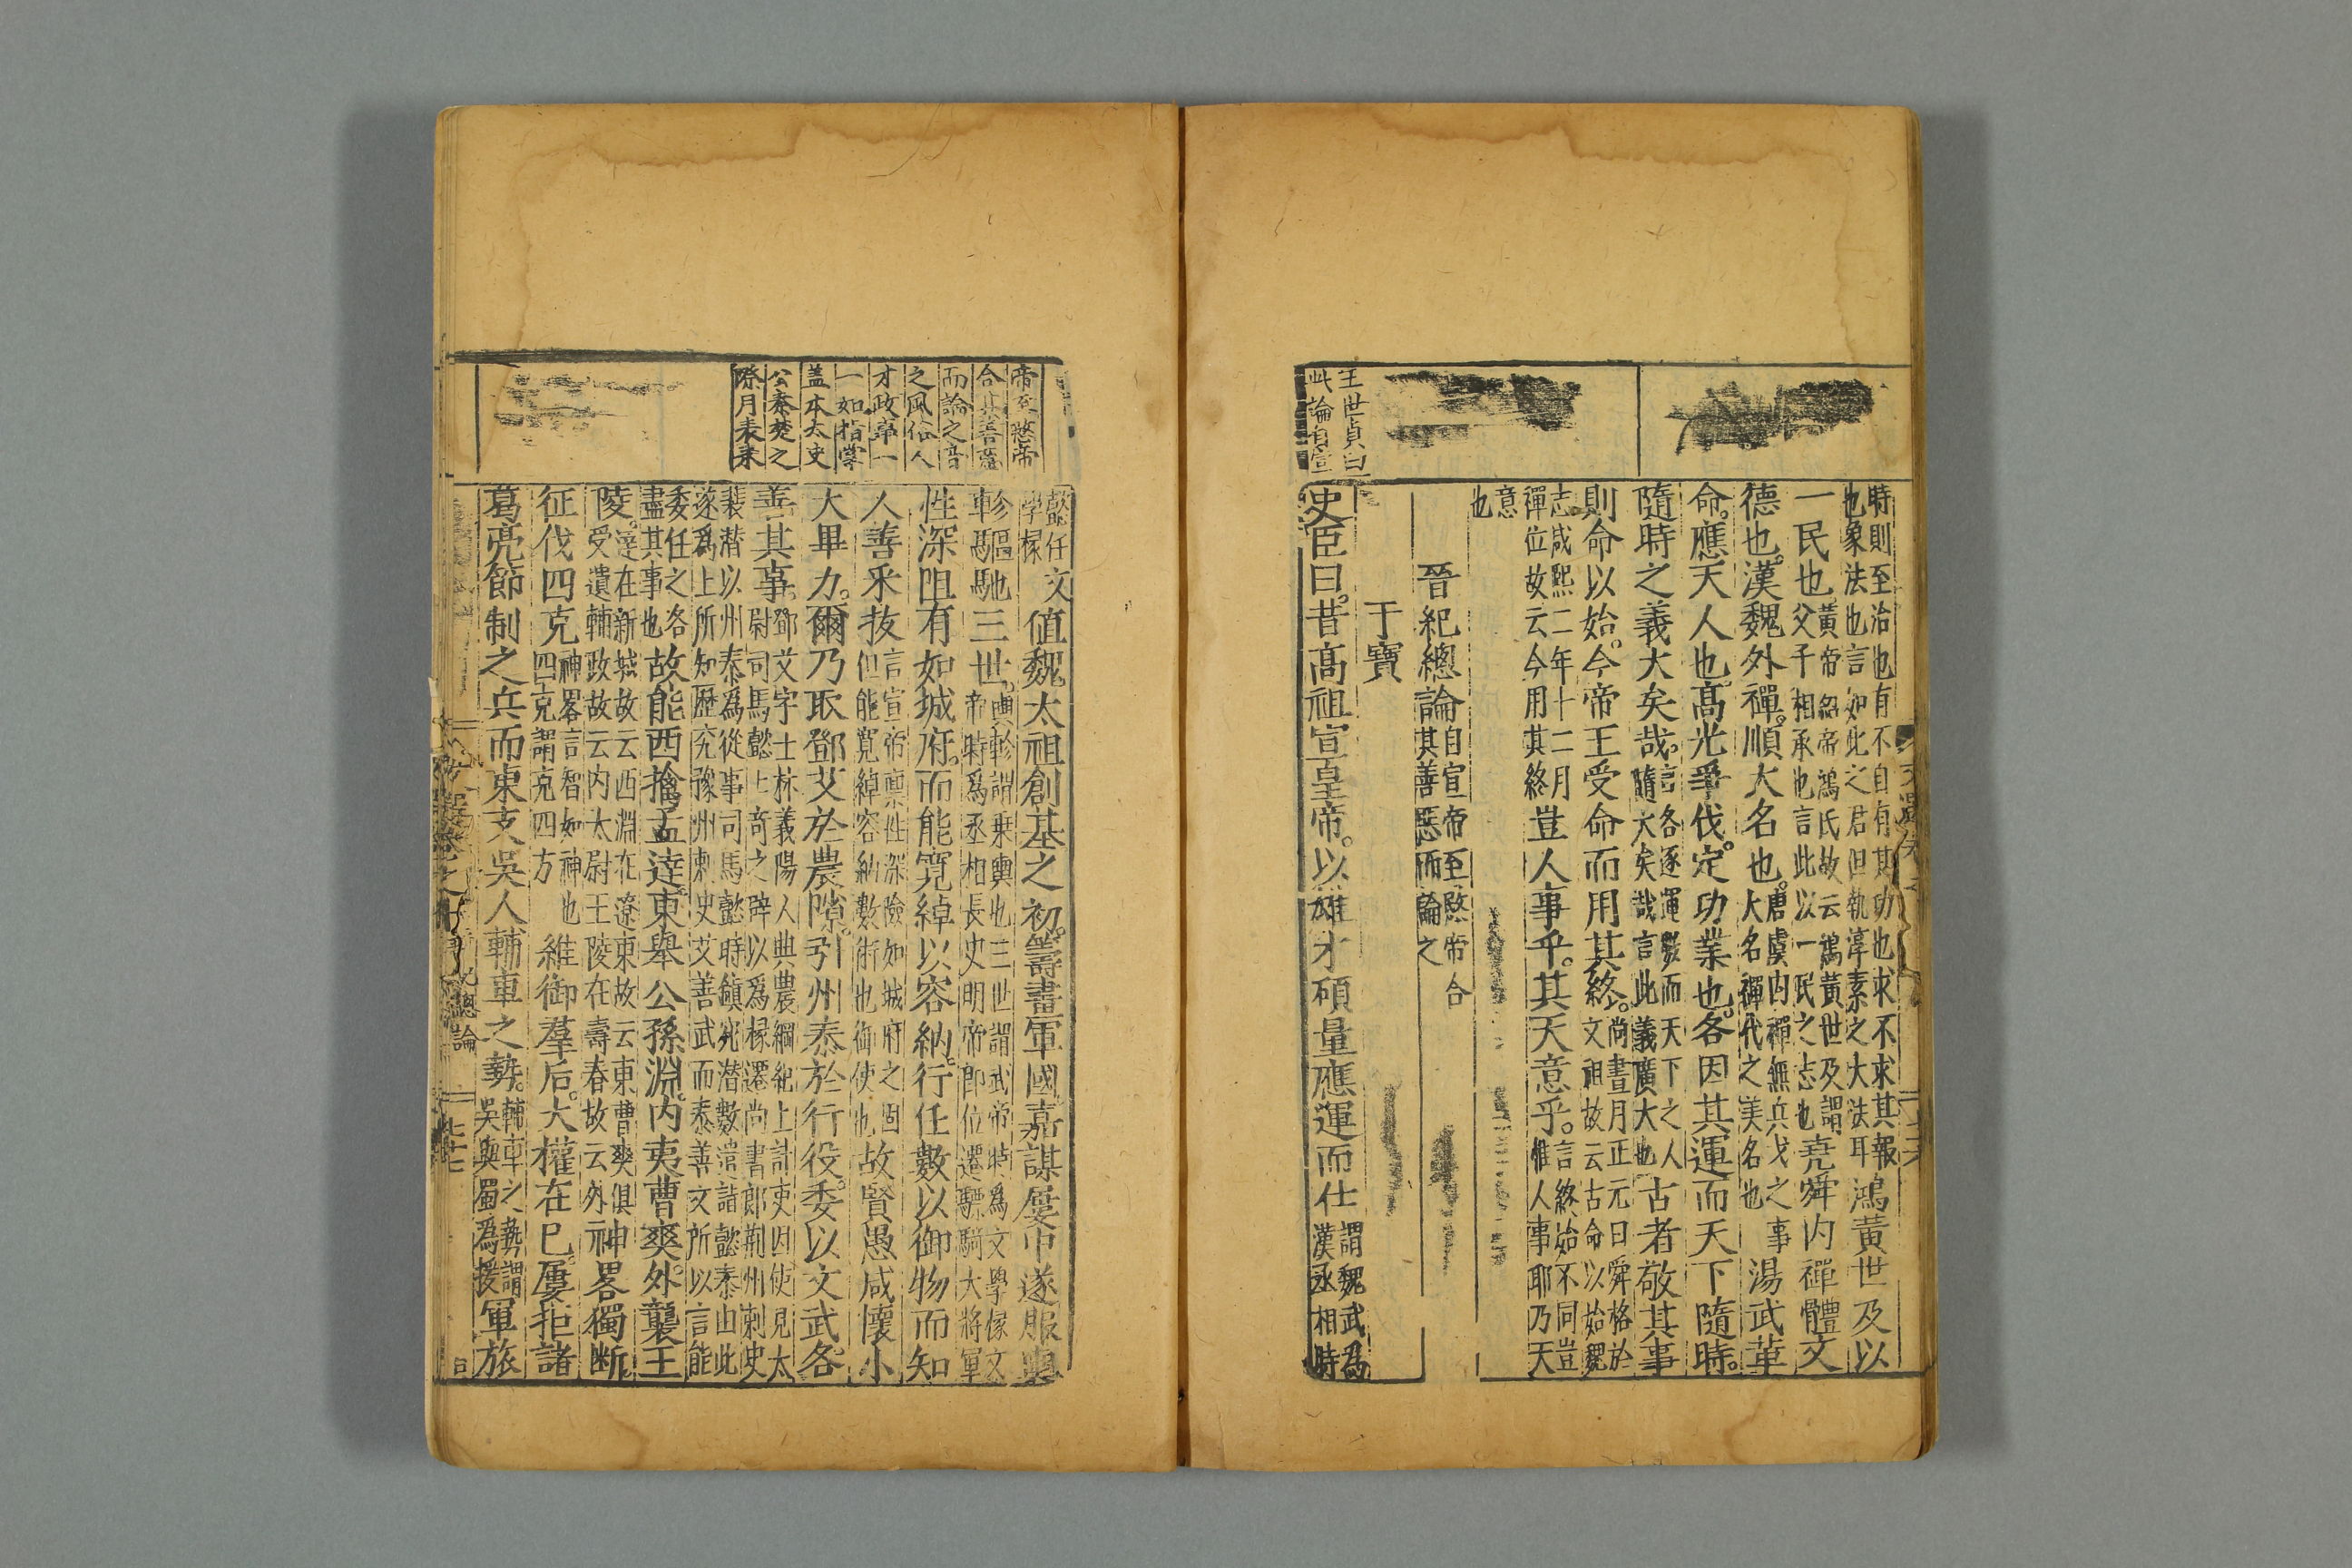 王世貞曰
此論自宣
時則至治也有不自有其功也求不求其報
也象法也言如此之君但執淳素之大法耳
鴻黃世及以
一民也
黃帝紹帝鴻氏故云鴻黃世及謂
父子相承也言此以一民之志也
堯舜内禪體文
德也。漢魏外禪。順大名也。
唐虞内禪無兵戈之事
大名禪代之美名也
湯武革
命。應天人也。高光爭伐。定功業也。各因其運而天下隨時。
隨時之義大矣哉。
言各逐運數而天下之人
隨大矣哉言此義廣大也
古者敬其事
則命以始。今帝王受命而用其終。
尚書月正元日舜格於
文祖故云古命以始魏
志咸熙二年十二月
禪位故云今用其終
豈人事乎。其天意乎。
言終始不同豈
惟人事耶乃天
意
也
晉紀總論
自宣帝至愍帝合
其善惡而論之
于寶
史臣曰。昔高祖宣皇帝。以雄才碩量應運而仕
謂魏武為
漢丞相時
帝至愍帝
合其善惡
而論之晉
之風俗人
才政事一
一如指掌
蓋本太史
公秦楚之
際月表来
懿任文
學掾
值魏太祖創基之初。籌畫軍國。嘉謀屢中遂服輿
軫驅馳
車
三世。
輿軫謂乗輿也三世謂武帝時爲文學掾文
帝時爲丞相長史明帝即位遷驃騎大將軍
性深阻有如城府。而能寛綽以容納。行任數以御物而知
人善采拔
言宣帝禀性深險如城府之固
但能寛綽容納數術也御使也
故賢愚咸懷小
大畢力。爾乃取鄧艾於農隙。引州泰於行役。委以文武。各
善其事。
鄧艾字士林義陽人典農綱紀上計吏因使見太
尉司馬懿上奇之辟以爲掾遷尚書郎荆州刺史
裴潜以州泰爲從事司馬懿時鎮宛潜數遣詣懿泰由此
遂爲上所知歷兖豫州刺史艾善武而泰善文所以言能
委任之各
盡其事也
故能西擒孟達。東舉公孫淵。内夷曹爽。外襲王
陵。
達在新城故云西淵在遼東故云東曹爽俱
受遺輔政故云内太尉王陵在壽春故云外
神畧獨断。
征伐四克
神畧言智如神也
四克謂克四方
維御羣后。大權在巳。屢拒諸
葛亮節制之兵而東支吳人輔車之勢。
輔車之勢謂
吳與蜀為援
軍旅